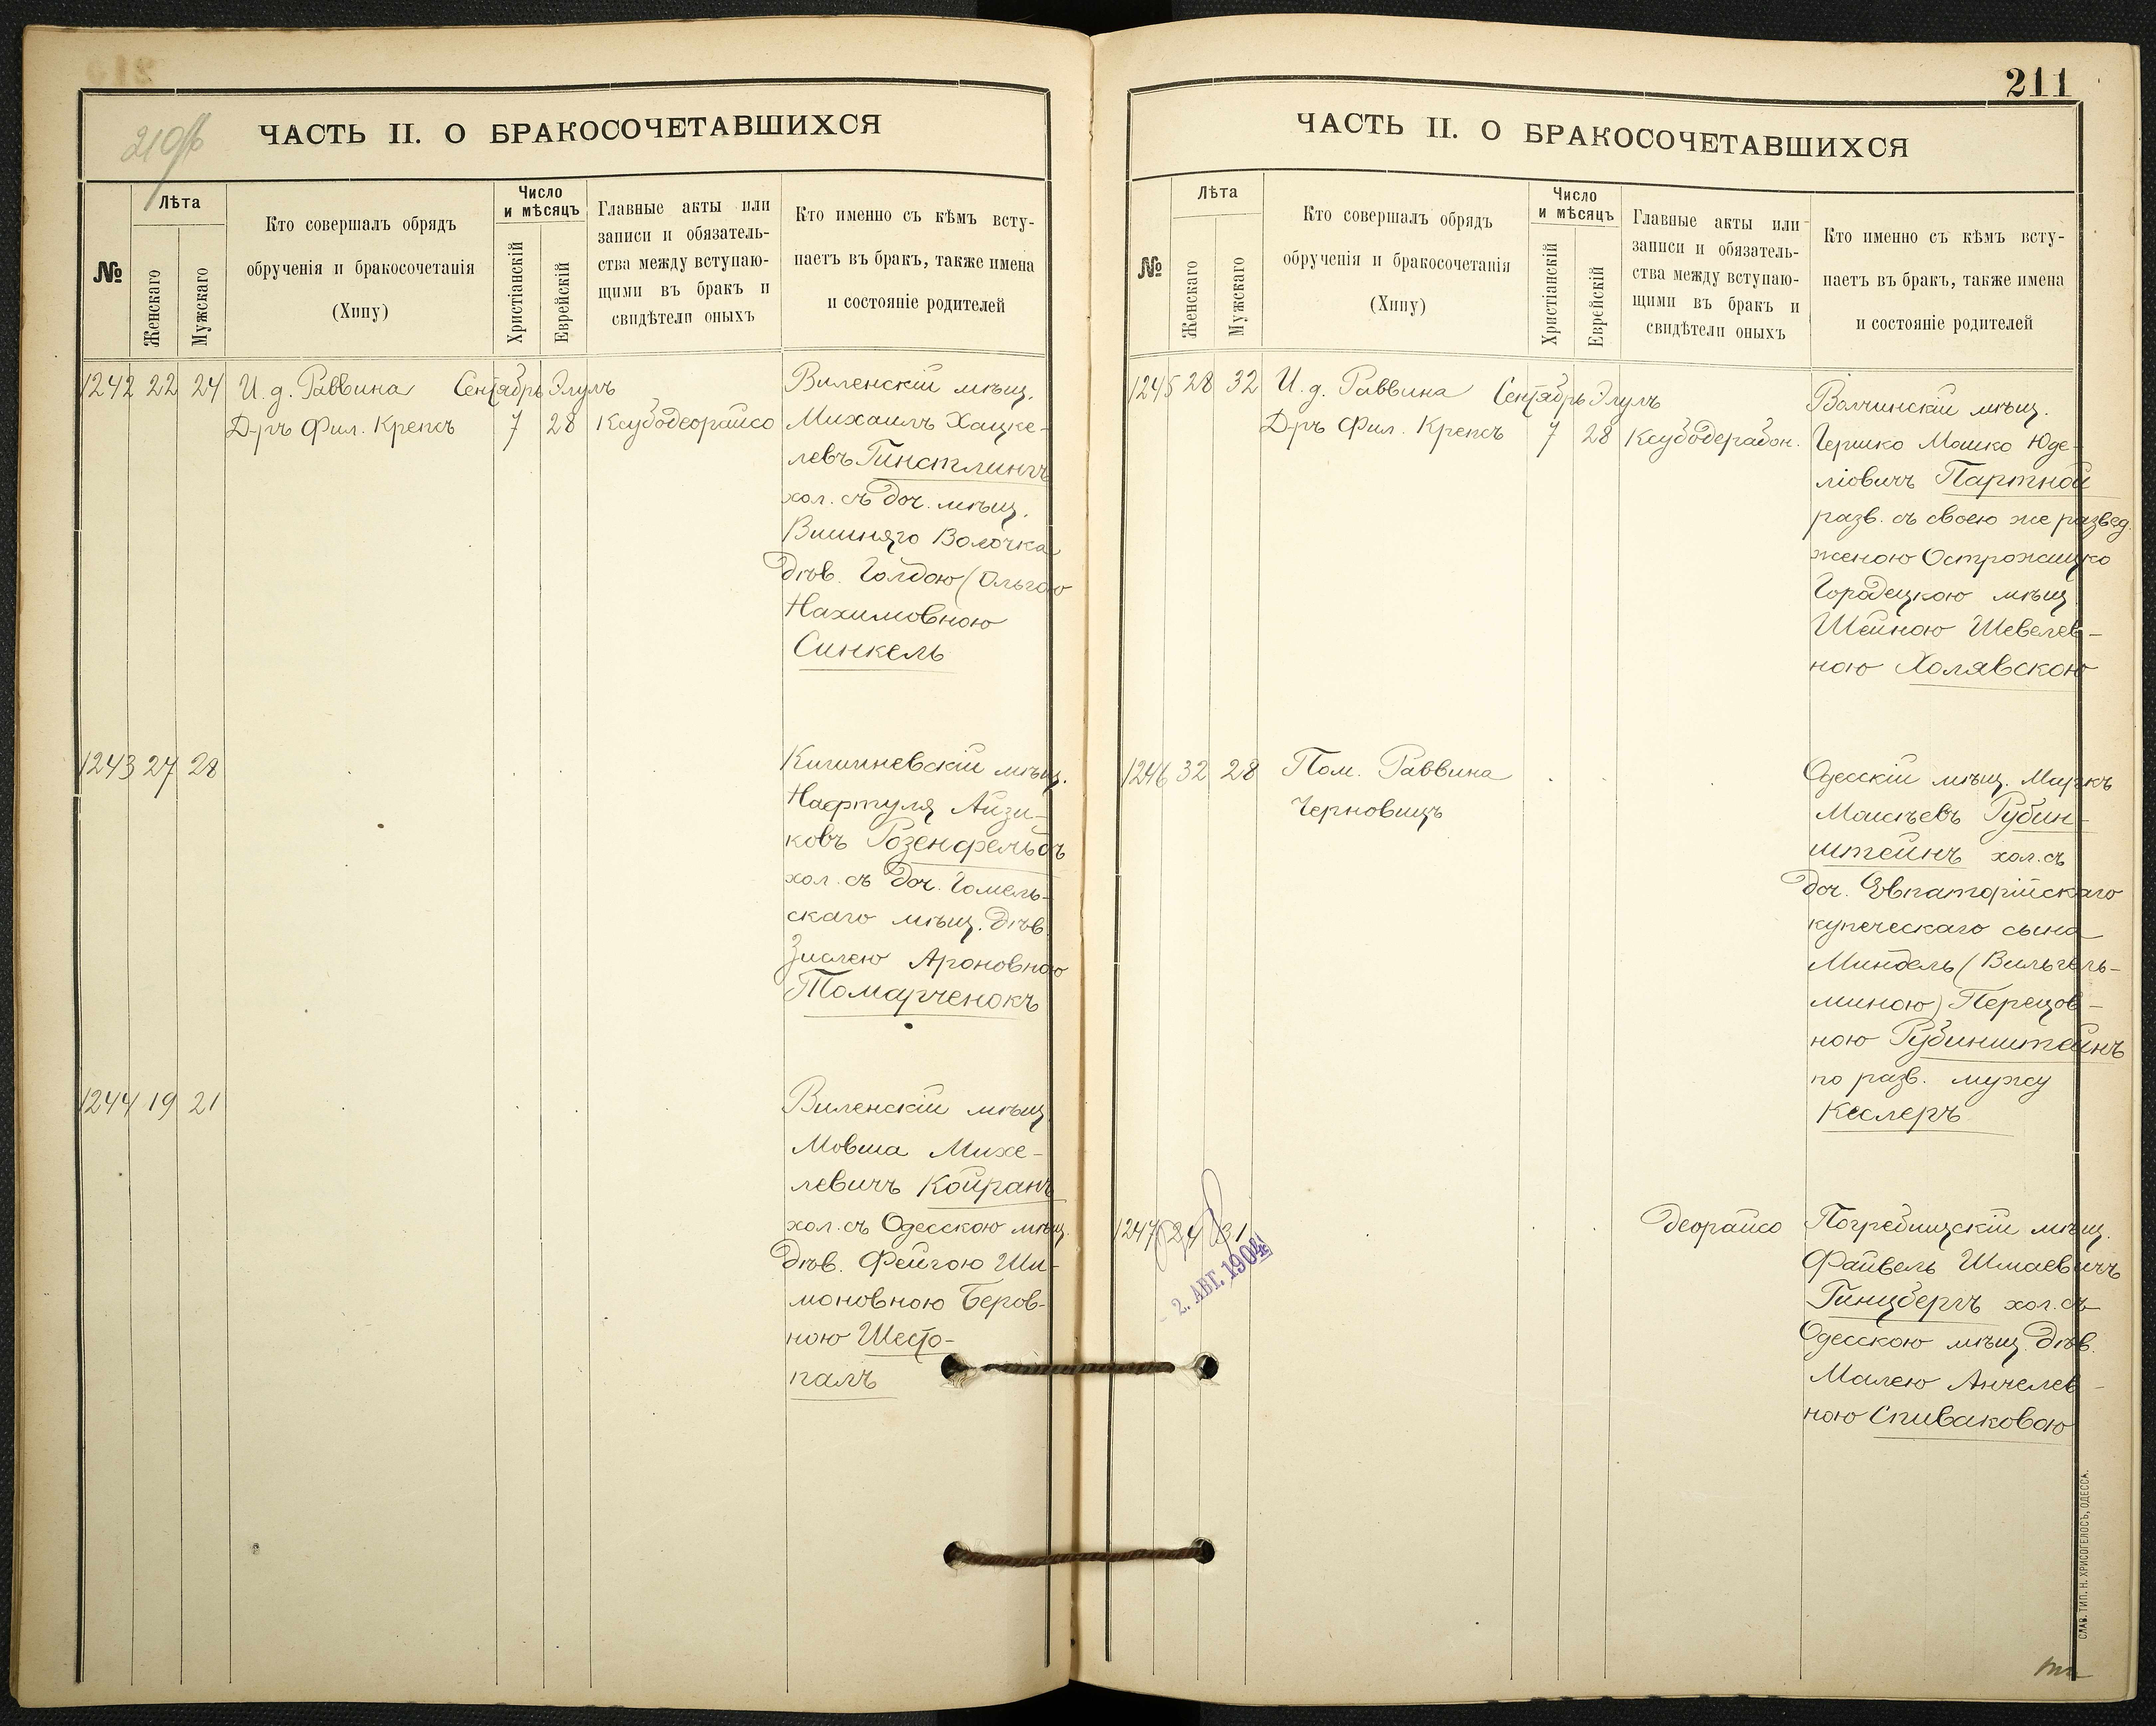 210об
ЧАСТЬ II. О БРАКОСОЧЕТАВШИХСЯ
№
Лѣта
Женскаго
Мужскаго
Кто совершалъ обрядъ
обрученія и бракосочетанія
(Хипу)
Число
и мѣсяцъ
Христіанскій
Еврейскій
Главные акты или
записи и обязатель-
ства между вступаю-
щими въ бракъ и
свидѣтели оныхъ
Кто именно съ кѣмъ всту-
паетъ въ бракъ, также имена
и состояніе родителей
1242 22 24 И. д. Раввина Сентябрь Элулъ
Д-ръ Фил. Крепсъ 7 28 Ксубодеорайсо
Виленскій мѣщ.
Михаилъ Хацке-
левъ Гинстлингъ
хол. съ доч. мѣщ.
Вышняго Волочка
дѣв. Голдою (Ольгою
Нахимовною
Синкель
1243 27 28
Кишиневскій мѣщ.
Нафтуля Айзи-
ковъ Розенфельдъ
хол. съ доч. Гомель-
скаго мѣщ. дѣв.
Зислею Ароновною
Помарченокъ
1244 19 21
Виленскій мѣщ.
Мовша Михе-
левичъ Койранъ
хол. съ Одесскою мѣщ.
дѣв. Фейгою Ши-
моновною Беров-
ною Шесто-
палъ
211
ЧАСТЬ II. О БРАКОСОЧЕТАВШИХСЯ
№
Лѣта
Женскаго
Мужскаго
Кто совершалъ обрядъ
обрученія и бракосочетанія
(Хипу)
Число
и мѣсяцъ
Христіанскій
Еврейскій
Главные акты или
записи и обязатель-
ства между вступаю-
щими въ бракъ и
свидѣтели оныхъ
Кто именно съ кѣмъ всту-
паетъ въ бракъ, также имена
и состояніе родителей
1245 28 32 И. д. Раввина Сентябрь Элулъ
Д-ръ Фил. Крепсъ 7 28 Ксубодерабон.
Волчинскій мѣщ.
Гершко Мошко Юде-
ліовичъ Партной
разв. съ своею же развед.
женою Острожицко
Городецкою мѣщ.
Шейною Шевелев-
ною Холявскою
1246 32 28 Пом. Раввина
Черновицъ
Одесскій мѣщ. Маркъ
Моисѣевъ Рубин-
штейнъ хол. съ
доч. Евпаторійскаго
купеческаго сына
Миндель (Вильгель-
миною) Перецов-
ною Рубинштейнъ
по разв. мужу
Кеслеръ
1247 24 31
деорайсо
Погребищскій мѣщ.
Файвель Шмаевичъ
Гинцбергъ хол. съ
Одесскою мѣщ. дѣв.
Малею Анчелев-
ною Спиваковою
- 2. АВГ. 1904
СЛАВ. ТИП. Н. ХРИСОГЕЛОСЪ, ОДЕССА.